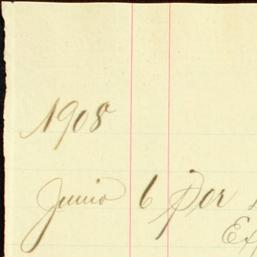 1908
Junio 6 Por